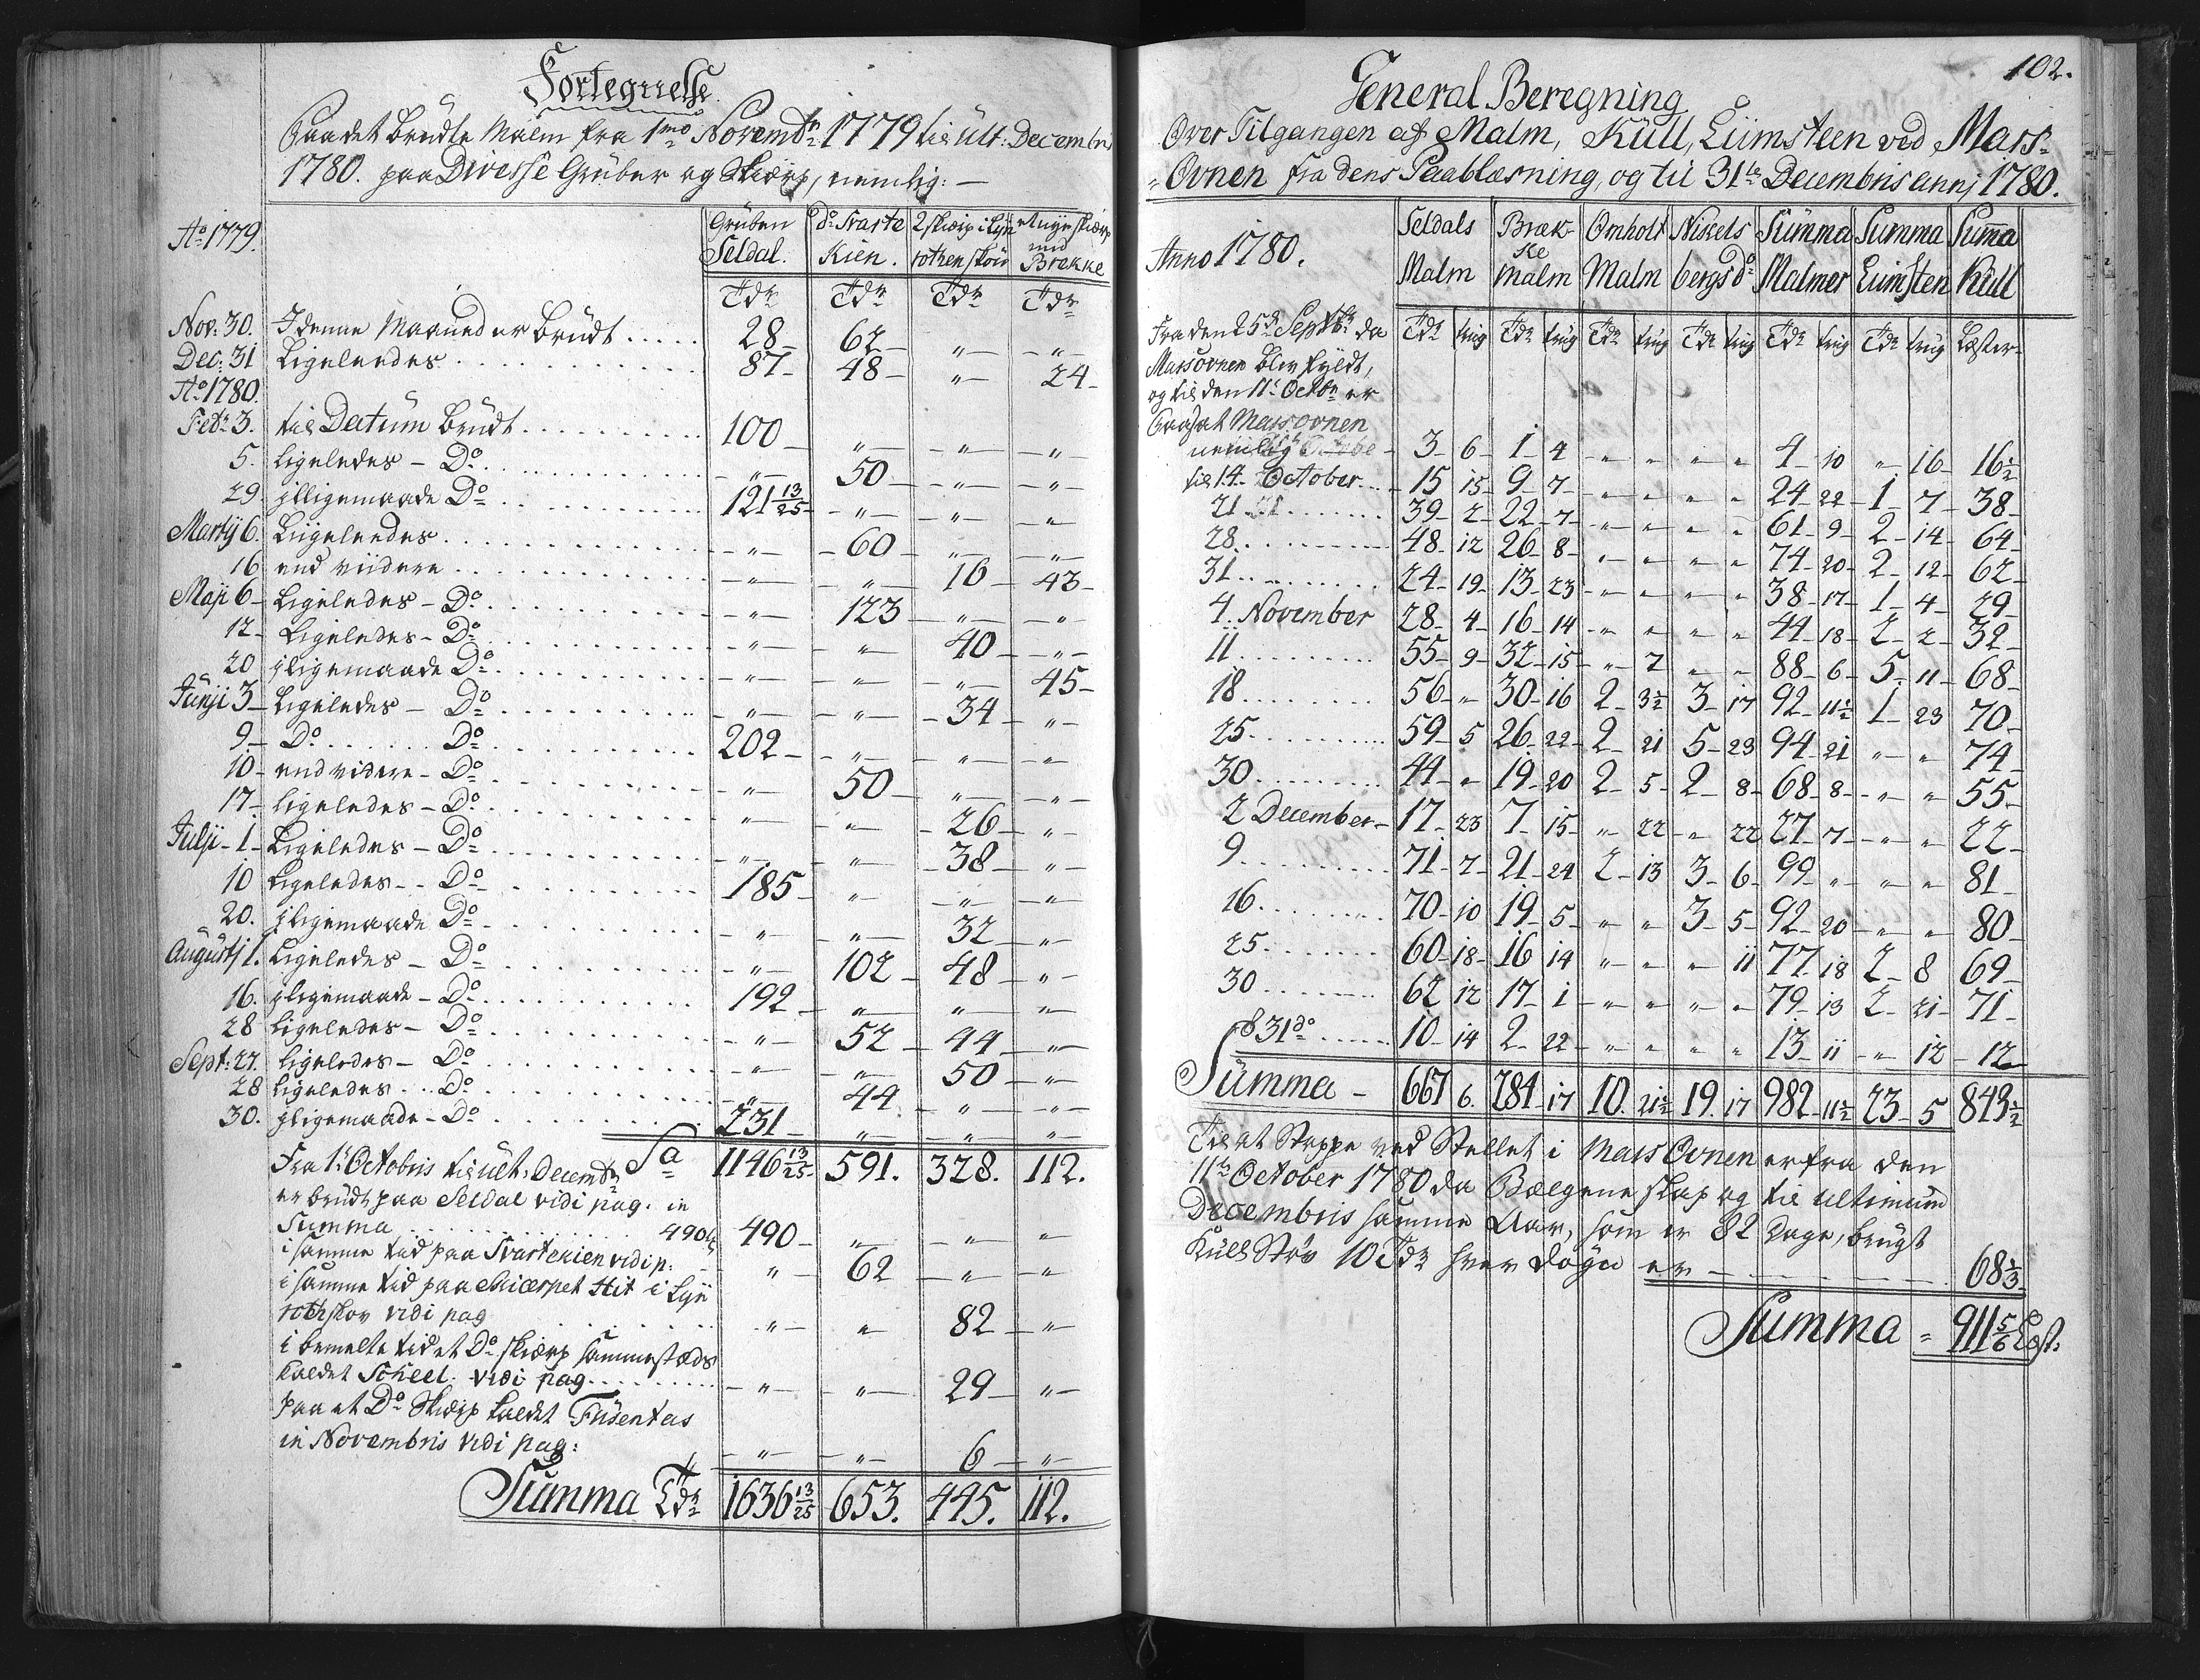 Fortegnelse
Paa det brudte Malm fra 1mo Novembr: 1779 til Ult: Decembris
1780. paa Divesse Grüber og Skiærp, nemlig: —
Ao 1779. Grüben Seldal. do Svarte Kien. 2 skierp i Lyn rothen skov et nye skierp ved Brække
Tdr Tdr Tdr Tdr
Nov: 30. I denne Maaned er brüdt ..... 28 62 „ „
Dec: 31 Ligeleedes ..... 87 48 „ 24
Ao 1780.
Febr 3. til Datum brüdt ..... 100 „ „ „
5. ligeledes - Do ..... „ 50 „ „
29. iligemaade Do ..... 121 13/25 „ „ „
Martij 6. Ligeleedes ..... „ 60 „ „
16 end viidere ..... „ „ 16 43
Maji 6 Ligeledes - Do ..... „ 123 „ „
12 Ligeledes - Do ..... „ „ 40 „
20 iligemaade Do ..... „ „ „ 45
Junji 3 Ligeledes - Do ..... „ „ 34 „
9 Do ..... Do ..... 202 „ „ „
10 end videre - Do ..... „ 50 „ „
17 ligeledes - Do ..... „ „ 26 „
Julji 1 Ligeledes - Do ..... „ „ 38 „
10 Ligeledes - Do ..... 185 „ „ „
20. iligemaade Do ..... „ „ 32 „
Augustj 1. Ligeledes - Do ..... „ 102 48 „
16. iligemaade - Do ..... 192 „ „ „
28 ligeledes - Do ..... „ 52 44 „
Sept: 27. ligeledes - Do ..... „ „ 50 „
28 ligeledes - Do ..... „ 44 „ „
30. iligemaade - Do ..... 231 „ „ „
Sa 1146 13/25 591. 328. 112.
Fra 1t Octobris til ult: Decembr
er brüdt paa Seldal vidi pag. in
Summa ..... 490 490 „ „ „
i samme tid paa Svartekien vidi p: „ 62 „ „
i samme tid paa Skiærpet Hit i Lyn
rothskov vidi pag ..... „ „ 82 „
i bemelte tid et Do skierp sammesteds
kaldet Scheel. vidi pag ..... „ „ 29 „
paa et Do Skierp kaldet Füsentas
in Novembris vidi pag: „ „ 6 „
Summa Tdr 1636 13/25 653. 445. 112.
102.
General Beregning
Over Tilgangen af Malm, Küll, Liimsteen ved Mass-
Ovnen fra dens Paablæsning, og til 31te Decembris annj 1780.
Anno 1780. Seldals Malm Bræk ke malm Omholt Malm Nixels bergs do Summa Malmer Summa Liimsten Suma Küll
Tdr trüg Tdr trüg Tdr trüg Tdr trüg Tdr trüg Tdr trüg Læster
Fra den 25de Septbr da
Massovnen blev fyldt,
og til den 11t Octbr er
Paasat Massovnen
nemlig 3 6 1 4 „ „ „ „ 4 10 „ 16 16 1/2
til 14 October 15 15 9 7 „ „ „ „ 24 22 1 7 38
21 ..... 39 2 22 7 „ „ „ „ 61 9 2 14 64
28 ..... 48 12 26 8 „ „ „ „ 74 20 2 12 62
31 ..... 24 19 13 23 „ „ „ „ 38 17 1 4 29
4. November 28 4 16 14 „ „ „ „ 44 18 2 2 32
11 ..... 55 9 32 15 „ 7 „ „ 88 6 5 11 68
18 ..... 56 „ 30 16 2 3 1/2 3 17 92 11 1/2 1 23 70
25 ..... 59 5 26 22 2 21 5 23 94 21 „ „ 74
30 ..... 44 „ 19 20 2 5 2 8 68 8 „ „ 55
2 December 17 23 7 15 „ 22 „ 22 27 7 „ „ 22
9 ..... 71 7 21 24 2 13 3 6 99 „ „ „ 81
16 ..... 70 10 19 5 „ „ 3 5 92 20 „ „ 80
25 ..... 60 18 16 14 „ „ „ 11 77 18 2 8 69
30 ..... 62 12 17 1 „ „ „ „ 79 13 2 21 71
31do ..... 10 14 2 22 „ „ „ „ 13 11 „ 12 12
Summa 667 6. 284 17 10. 21 1/2 19. 17 982 11 1/2 23 5 843 1/2
Til at Stoppe ved Stellet i Mass Ovnen er fra den
11te October 1780 da Bælgene slap og til ultimum
Decembris samme Aar, som er 82 Dage, brügt
Küll Støv 10 Tdr hver døgn er ..... 68 1/3
Summa 911 5/6 Læst: